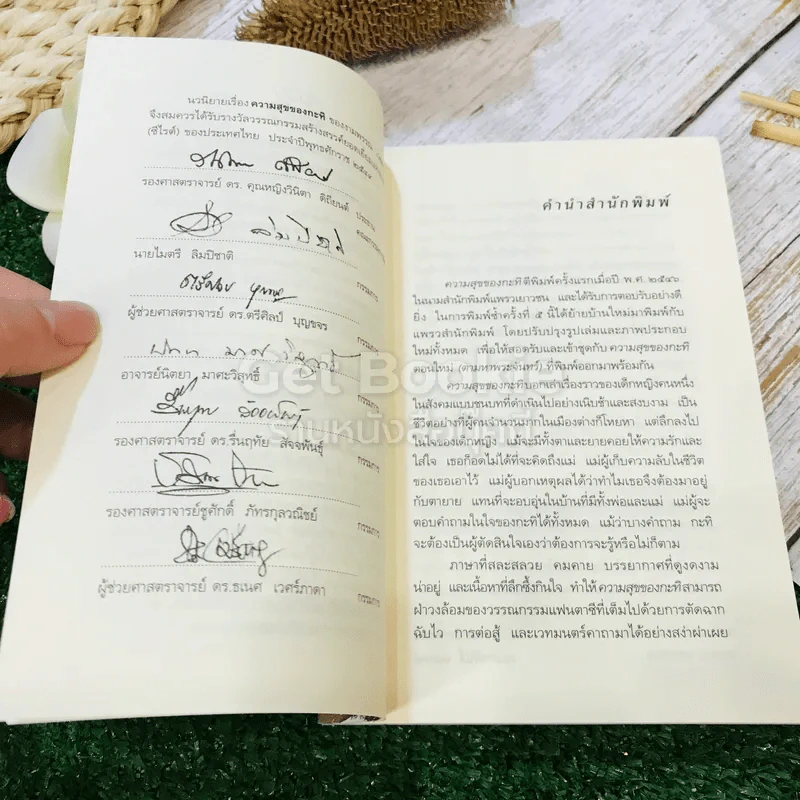 นวนิยายเรื่อง ความสุขของกะทิ ของงามพรรณ
จึงสมควรได้รับรางวัลวรรณกรรมสร้างสรรค์ยอดเยี่ยม
(ซีไรต์) ของประเทศไทย ประจำปีพุทธศักราช ๒๕๔๙
รองศาสตราจารย์ ดร. คุณหญิงวินิตา ดิถียนต์ ประธาน
คณะกรรมการ
นายไมตรี ลิมปิชาติ กรรมการ
ผู้ช่วยศาสตราจารย์ ดร.ตรีศิลป์ บุญขจร กรรมการ
อาจารย์นิตยา มาศะวิสุทธิ์ กรรมการ
รองศาสตราจารย์ ดร.รื่นฤทัย สัจจพันธุ์ กรรมการ
รองศาสตราจารย์ชูศักดิ์ ภัทรกุลวณิชย์ กรรมการ
ผู้ช่วยศาสตราจารย์ ดร.ธเนศ เวศร์ภาดา กรรมการ
คำนำสำนักพิมพ์
ความสุขของกะทิตีพิมพ์ครั้งแรกเมื่อปี พ.ศ. ๒๕๔๖
ในนามสำนักพิมพ์แพรวเยาวชน และได้รับการตอบรับอย่างดี
ยิ่ง ในการพิมพ์ซ้ำครั้งที่ ๕ นี้ได้ย้ายบ้านใหม่มาพิมพ์กับ
แพรวสำนักพิมพ์ โดยปรับปรุงรูปเล่มและภาพประกอบ
ใหม่ทั้งหมด เพื่อให้สอดรับและเข้าชุดกับ ความสุขของกะทิ
ตอนใหม่ (ตามหาพระจันทร์) ที่พิมพ์ออกมาพร้อมกัน
ความสุขของกะทิบอกเล่าเรื่องราวของเด็กหญิงคนหนึ่ง
ในสังคมแบบชนบทที่ดำเนินไปอย่างเนิบช้าและสงบงาม เป็น
ชีวิตอย่างที่ผู้คนจำนวนมากในเมืองต่างก็โหยหา แต่ลึกลงไป
ในใจของเด็กหญิง แม้จะมีทั้งตาและยายคอยให้ความรักและ
ใส่ใจ เธอก็อดไม่ได้ที่จะคิดถึงแม่ แม่ผู้เก็บความลับในชีวิต
ของเธอเอาไว้ แม่ผู้บอกเหตุผลได้ว่าทำไมเธอจึงต้องมาอยู่
กับตายาย แทนที่จะอบอุ่นในบ้านที่มีทั้งพ่อและแม่ แม่ผู้จะ
ตอบคำถามในใจของกะทิได้ทั้งหมด แม้ว่าบางคำถาม กะทิ
จะต้องเป็นผู้ตัดสินใจเองว่าต้องการจะรู้หรือไม่ก็ตาม
ภาษาที่สละสลวย คมคาย บรรยากาศที่ดูงดงาม
น่าอยู่ และเนื้อหาที่ลึกซึ้งกินใจ ทำให้ ความสุขของกะทิสามารถ
ฝ่าวงล้อมของวรรณกรรมแฟนตาซีที่เต็มไปด้วยการตัดฉาก
ฉับไว การต่อสู้ และเวทมนตร์คาถามาได้อย่างสง่าผ่าเผย